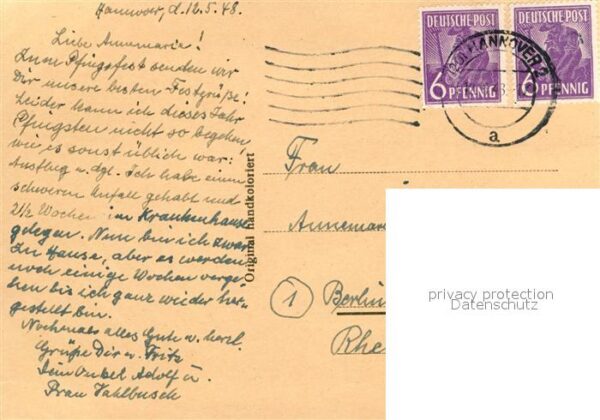 Hannover, d. 12.5.48.
Liebe Annemarie!
Zum Pfingstfest senden wir
Dir unsere besten Festgrüße!
Leider kann ich dieses Jahr
Pfingsten nicht so begehen
wie es sonst üblich war:
Ausflug u. dgl. Ich habe einen
schweren Unfall gehabt und
2½ Wochen im Krankenhause
gelegen. Nun bin ich zwar
zu Hause, aber es werden
noch einige Wochen verge-
hen bis ich ganz wieder her-
gestellt bin.
Nochmals alles Gute u. herzl.
Grüße Dir u. Fritz
Dein Onkel Adolf u.
Frau Vahlbusch
Original handkoloriert
DEUTSCHE POST
6 PFENNIG
DEUTSCHE POST
6 PFENNIG
(20) HANNOVER 2
a
Frau
Annemarie
1 Berlin
Rhe
privacy protection
Datenschutz